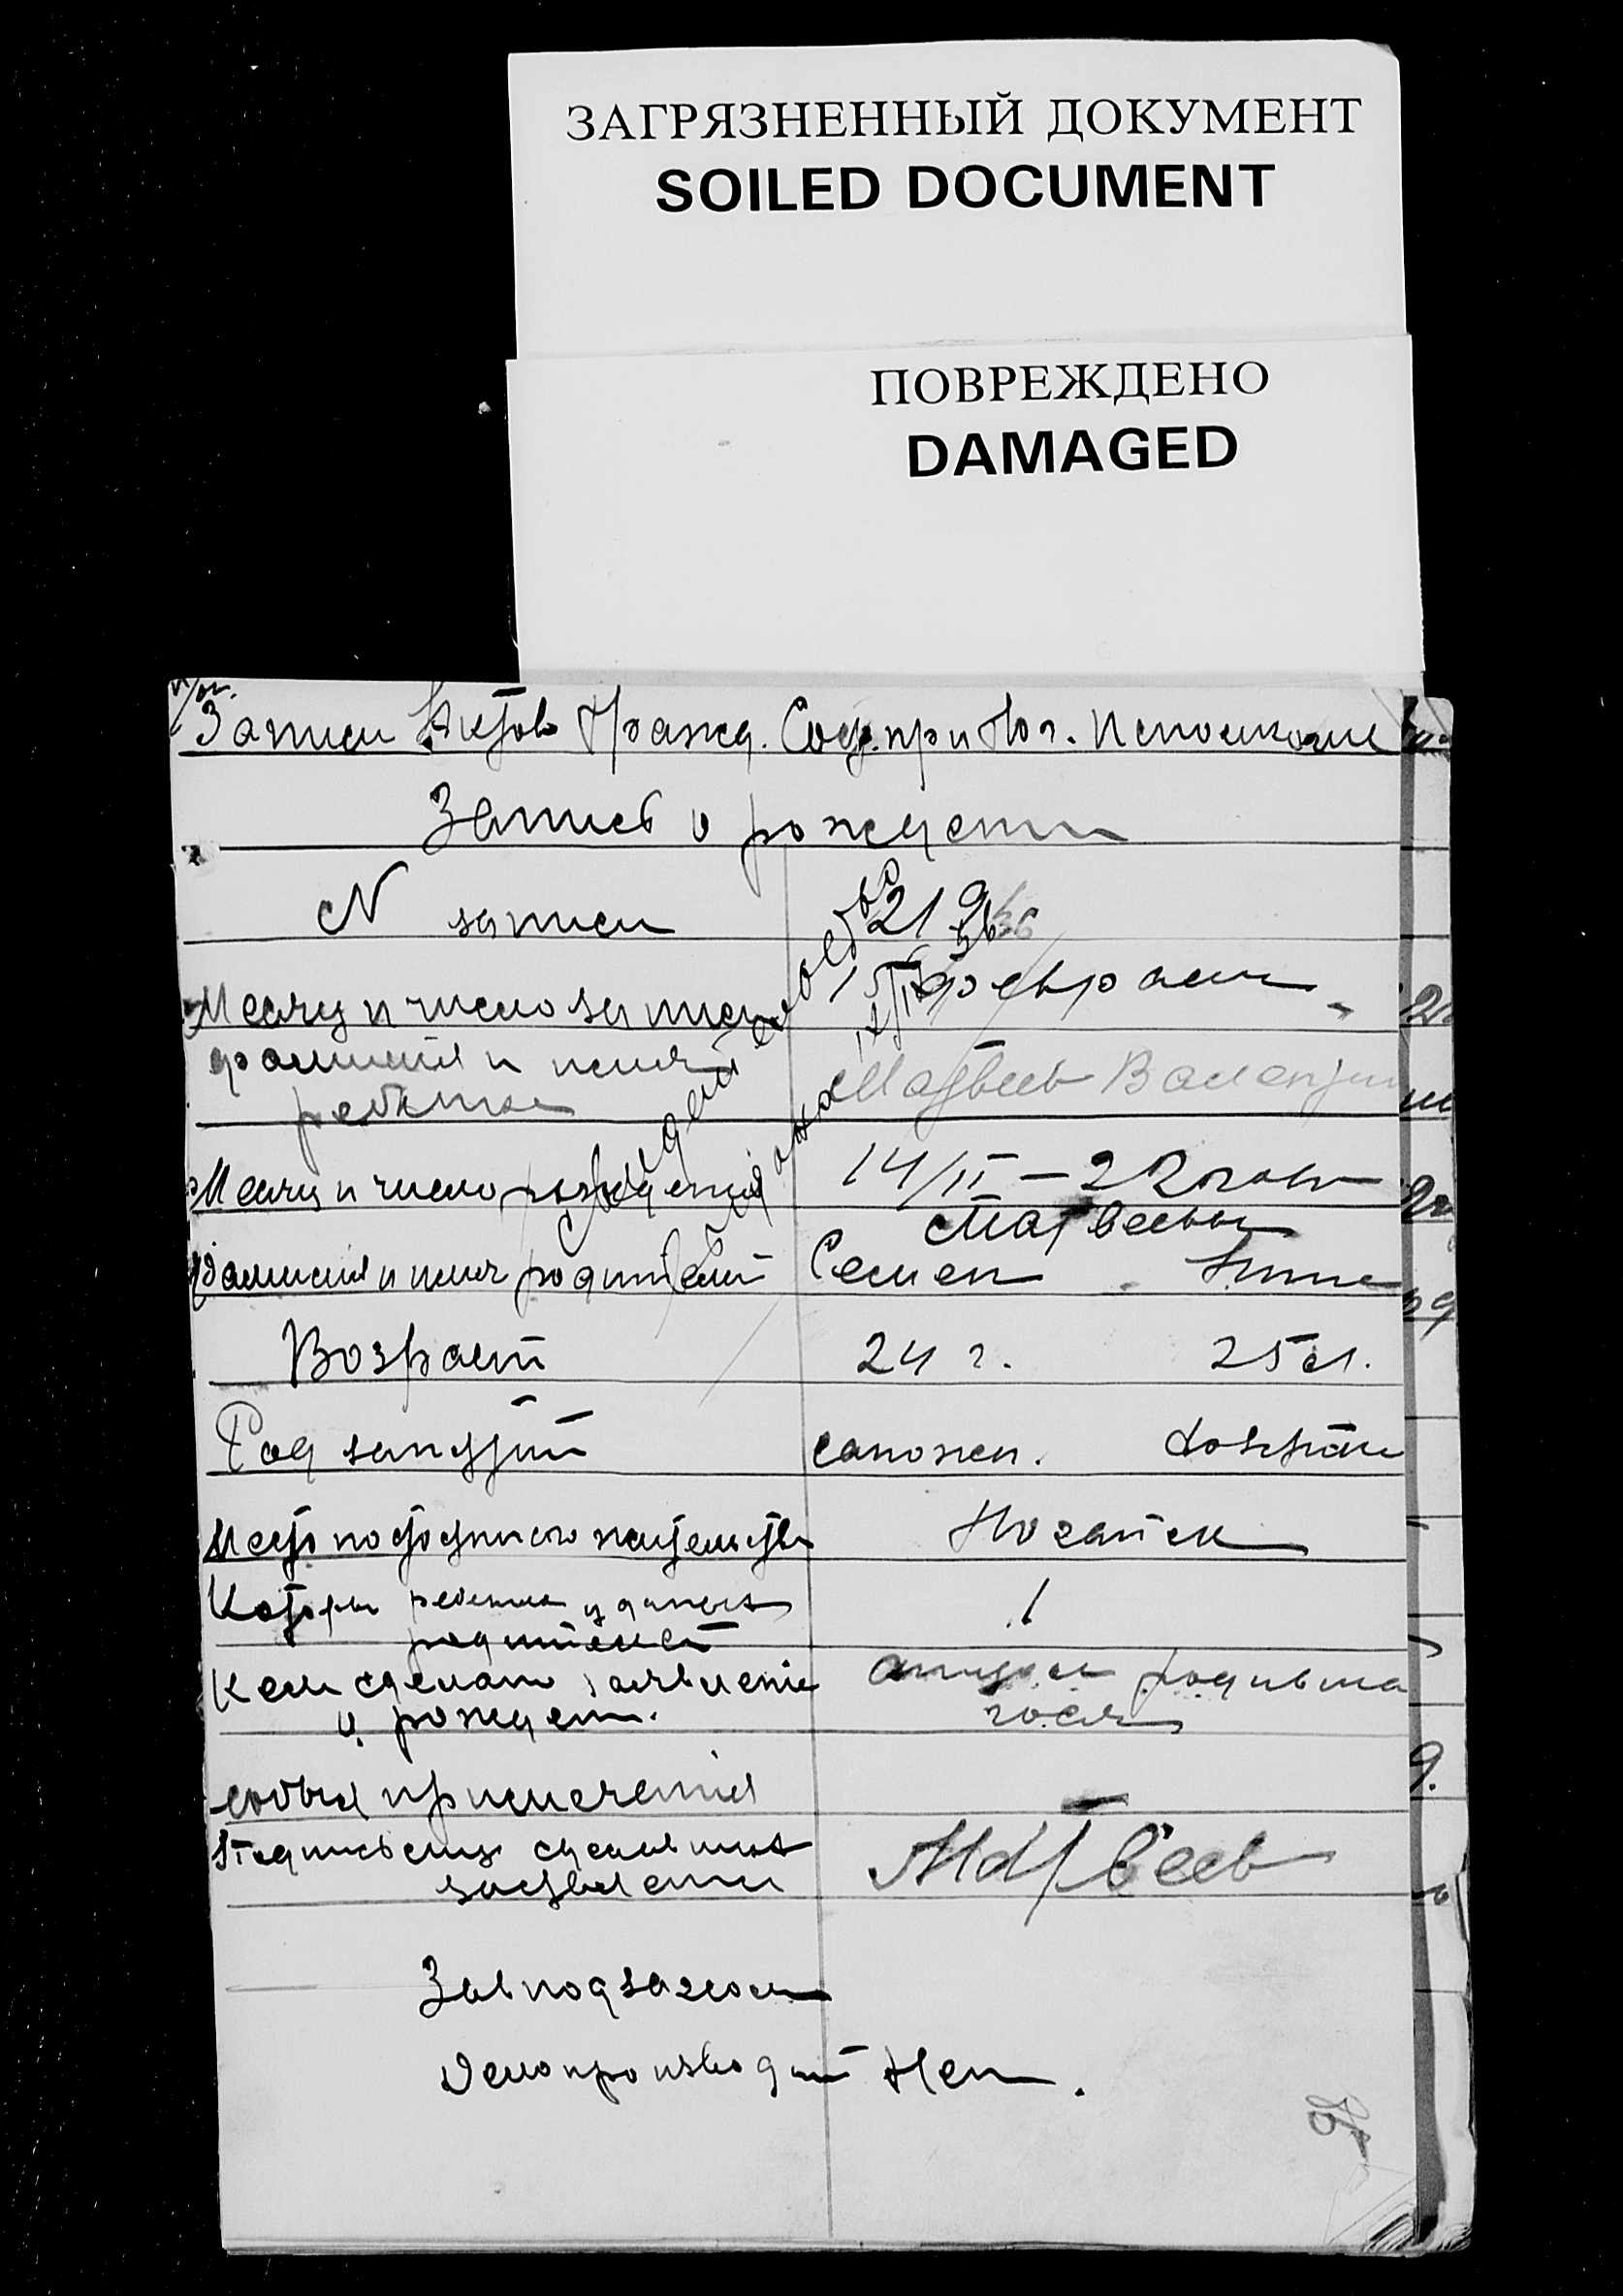 ЗАГРЯЗНЕННЫЙ ДОКУМЕНТ
SOILED DOCUMENT
ПОВРЕЖДЕНО
DAMAGED
Записи Актов Гражд. Сост. при Ног. Исполкоме
Запись о рождении
N записи 219
Месяц и число записи 15 февраля
фамилия и имя Матвеев Валентин
ребенка
Месяц и число рождения 14/II – 22 года
Матвеевы
Фамилия и имя родителей Семен Анна
Возраст 24 г. 25 л.
Род занятий сапожн. хозяйка
Место постоянного жительства Ногайск
Который ребенок у данных 1
родителей
Кем сделано заявление отцом родивша
о рождени. гося
особыя примечания
Подпись лица сделавшаго Матвеев
заявление
Завподзагсом
Делопроизводит